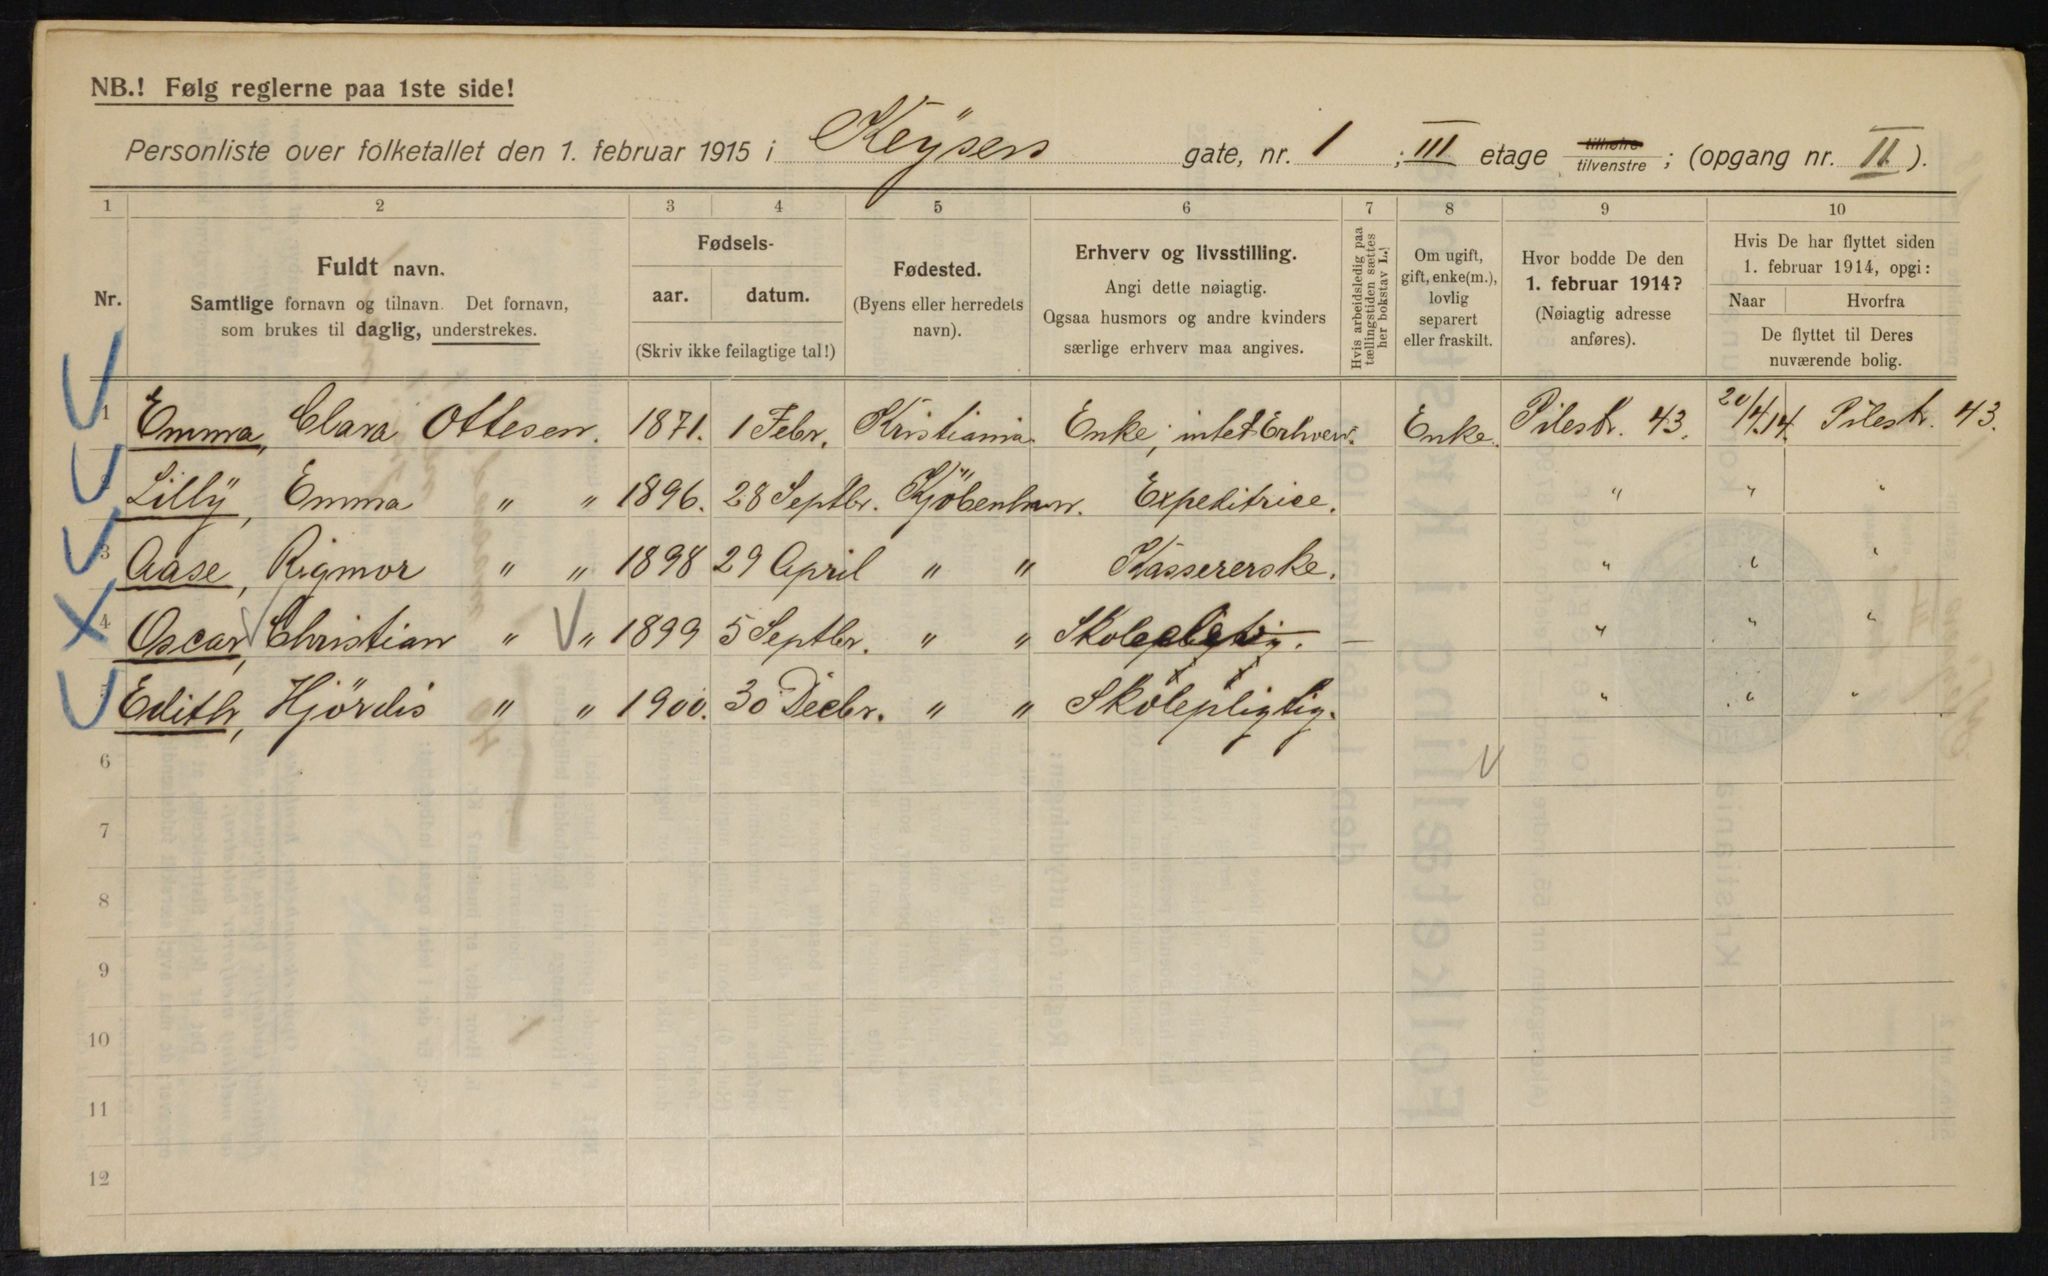 NB.! Følg reglerne paa 1ste side!
Personliste over folketallet den 1. februar 1915 i Keÿsers gate, nr. 1 ; III etage tilhøire tilvenstre ; (opgang nr. II ).
1 2 3 4 5 6 7 8 9 10
Nr.
Fuldt navn.
Samtlige fornavn og tilnavn. Det fornavn,
som brukes til daglig, understrekes.
Fødsels-
aar. datum.
(Skriv ikke feilagtige tal!)
Fødested.
(Byens eller herredets
navn).
Erhverv og livsstilling.
Angi dette nøiagtig.
Ogsaa husmors og andre kvinders
særlige erhverv maa angives.
Hvis arbeidsledig paa
tællingstiden sættes
her bokstav L.
Om ugift,
gift, enke(m.),
lovlig
separert
eller fraskilt.
Hvor bodde De den
1. februar 1914?
(Nøiagtig adresse
anføres).
Hvis De har flyttet siden
1. februar 1914, opgi:
Naar Hvorfra
De flyttet til Deres
nuværende bolig.
1 Emma, Clara Ottesen. 1871. 1 Febr. Kristiania. Enke, intet Erhverv. Enke. Pilestr. 43. 20/4.14. Pilestr. 43.
2 Lillÿ, Emma " " 1896. 28 Septbr. Kjöbenhavn. Expeditrice. " " "
3 Aase, Rigmor " " 1898 29 April " " Kassererske. " " "
4 Oscar, Christian " " 1899 5 Septbr. " " — " " "
5 Edith, Hjördis " " 1900. 30 Decbr. " " Skolepligtig. " " "
6
7
8
9
10
11
12